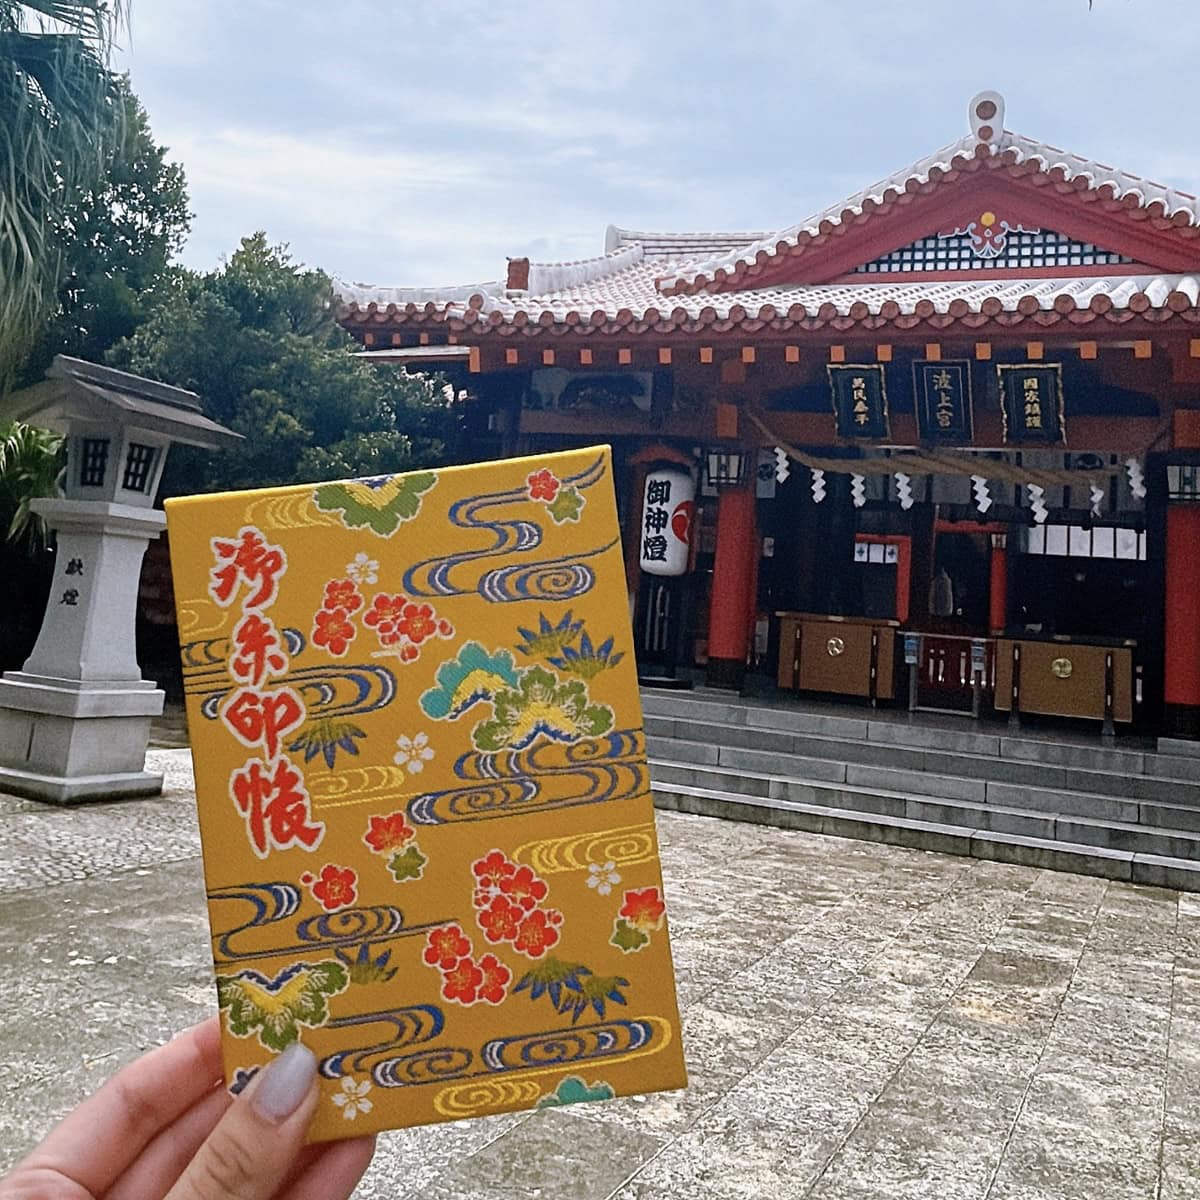 御朱印帳
萬民泰平
波上宮
國家鎮護
御神燈
獻燈